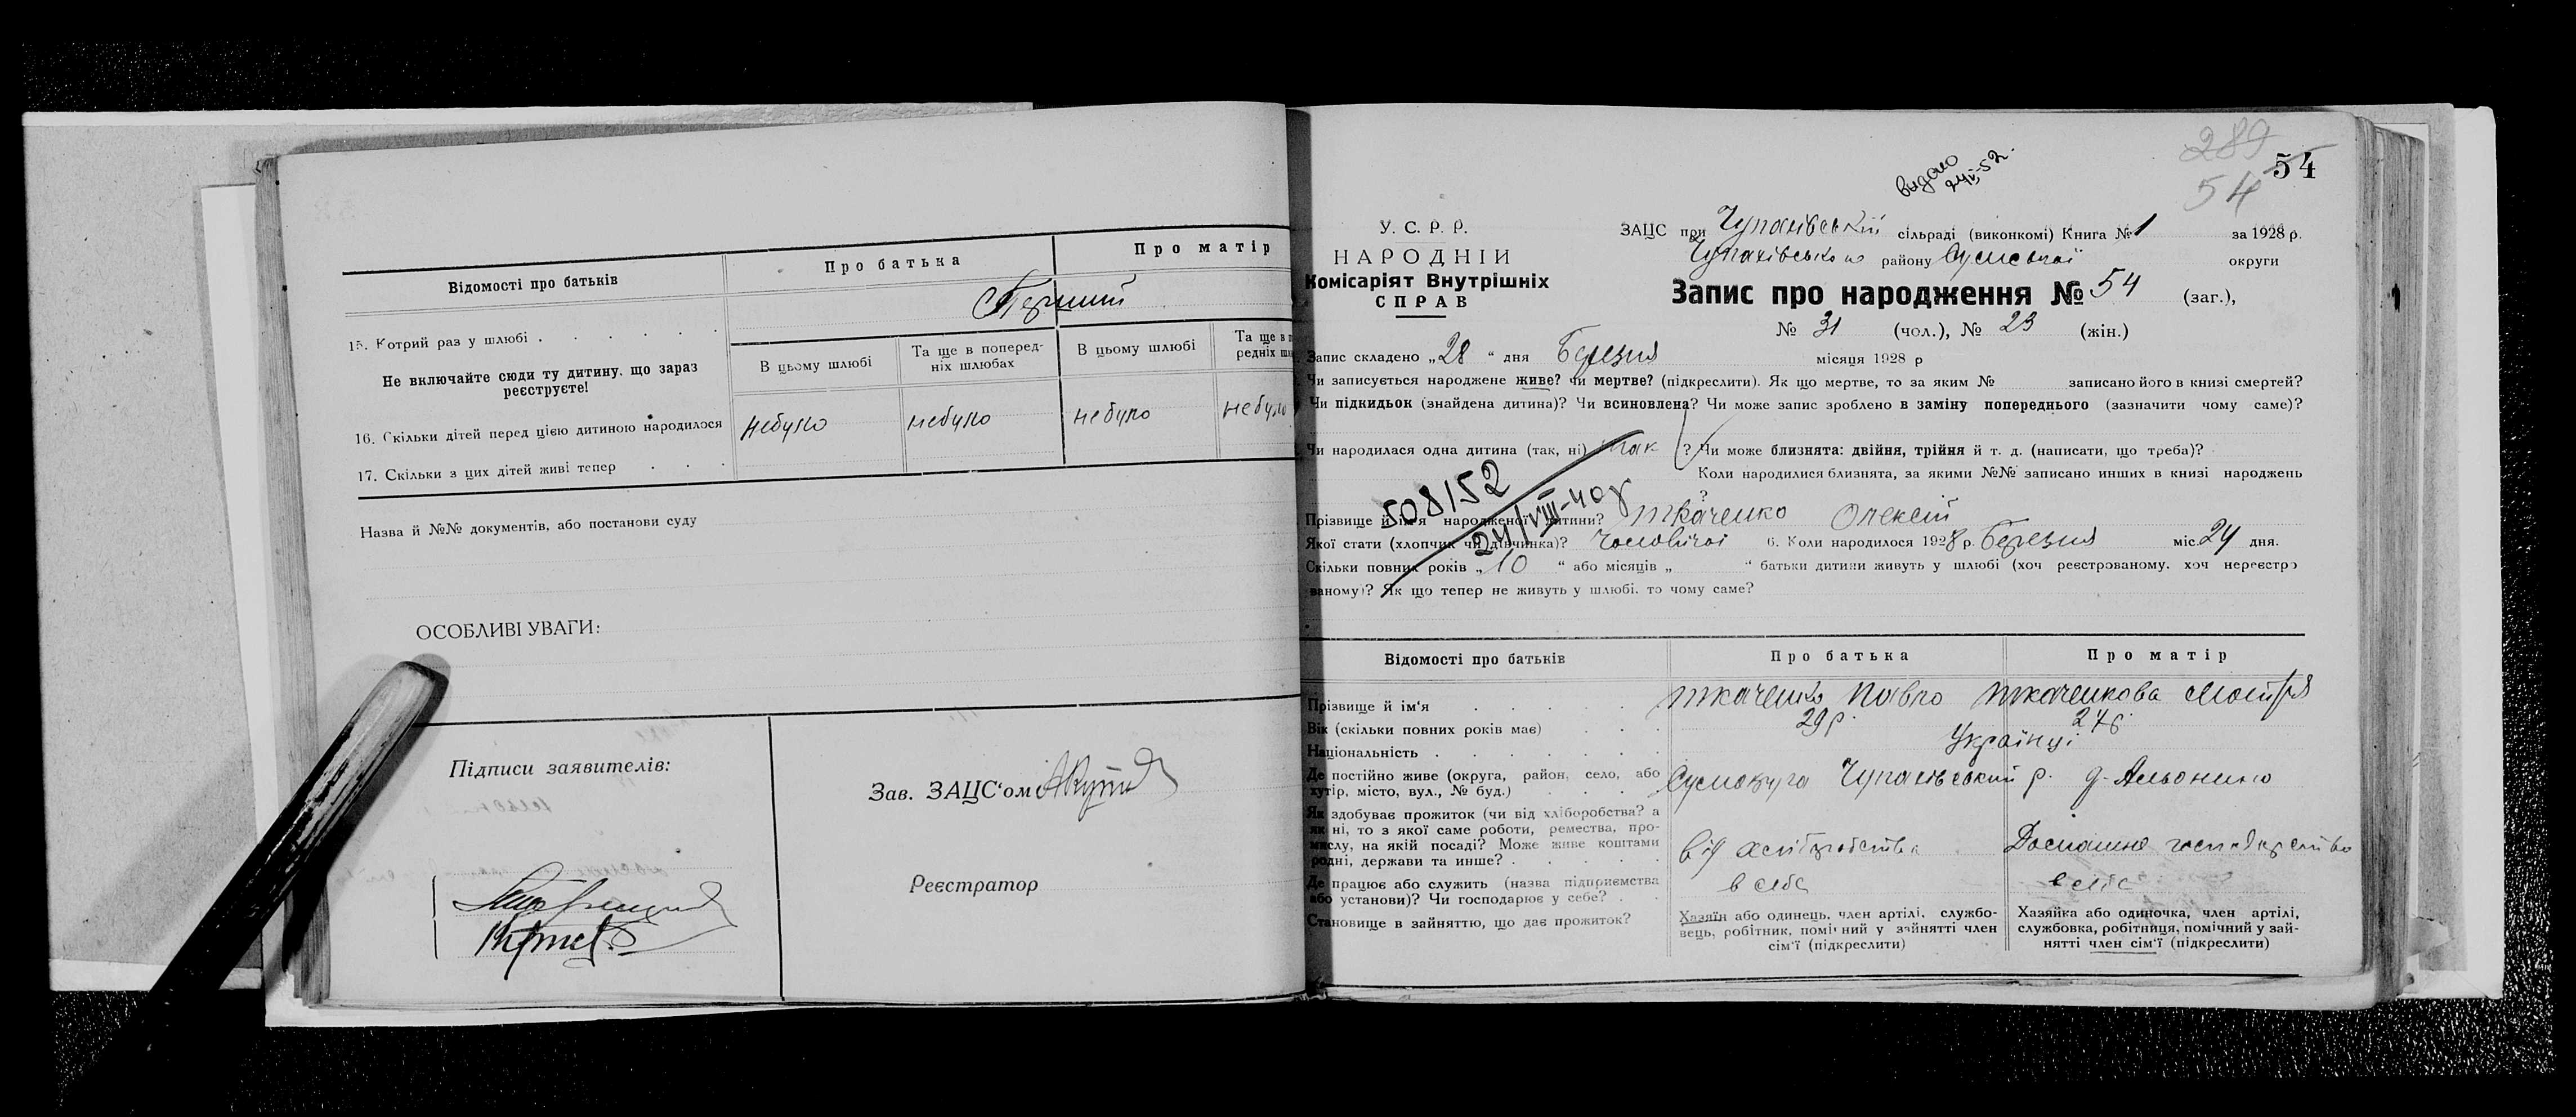 Відомості про батьків
Про батька
Про матір
Перший
15. Котрий раз у шлюбі . . . . .
Не включайте сюди ту дитину, що зараз реєструєте!
В цьому шлюбі
Та ще в поперед-
ніх шлюбах
В цьому шлюбі
Та ще в п
редніх шл
16. Скільки дітей перед цією дитиною народилося
небуло
небуло
небуло
небуло
17. Скільки з цих дітей живі тепер . . .
Назва й №№ документів, або постанови суду
ОСОБЛИВІ УВАГИ:
Підписи заявителів:
Зав. ЗАЦС'ом
Реєстратор
289
54
54
видано
У. С. Р. Р.
НАРОДНІЙ
Комісаріят Внутрішніх
СПРАВ
ЗАЦС при Чупахівській сільраді (виконкомі) Книга № 1 за 1928 р.
Чупахівського району Сумської округи
Запис про народження № 54 (заг.),
№ 31 (чол.), № 23 (жін.)
Запис складено „28 “ дня Березня місяця 1928 р
Чи записується народжене живе? чи мертве? (підкреслити). Як що мертве, то за яким № записано його в книзі смертей?
Чи підкидьок (знайдена дитина)? Чи всиновлена? Чи може запис зроблено в заміну попереднього (зазначити чому саме)?
Чи народилася одна дитина (так, ні) так ? Чи може близнята: двійня, трійня й т. д. (написати, що треба)?
Коли народилися близнята, за якими №№ записано инших в книзі народжень
?
508/52
24/VIII-40р
Прізвище й ім'я народженої дитини? Ткаченко Олексій
Якої стати (хлопчик чи дівчинка)? Чоловічої 6. Коли народилося 1928 р. Березня міс. 24 дня.
Скільки повних років „ 10 “ або місяців „ “ батьки дитини живуть у шлюбі (хоч реєстрованому, хоч нереєстро
ваному)? Як що тепер не живуть у шлюбі, то чому саме?
Відомості про батьків
Про батька
Про матір
Прізвище й ім'я . . . . .
Ткаченко Павло
Ткаченкова Мотря
Вік (скільки повних років має) . . .
29 р.
24 р.
Національність . . . . . . .
Українці
Де постійно живе (округа, район, село, або
хутір, місто, вул., № буд.) . . . .
Сумокруга Чупахівський р.
Як здобуває прожиток (чи від хліборобства? а
як ні, то з якої саме роботи, ремества, про-
мислу, на якій посаді? Може живе коштами
родні, держави та инше? . . . . .
від хліборобства
Домашнє господарство
Де працює або служить (назва підприємства
або установи)? Чи господарює у себе? . .
в себе
в себе
Становище в зайняттю, що дає прожиток?
Хазяїн або одинець, член артілі, службо-
вець, робітник, помічний у зайнятті член
сім'ї (підкреслити)
Хазяйка або одиночка, член артілі,
службовка, робітниця, помічний у зай-
нятті член сім'ї (підкреслити)